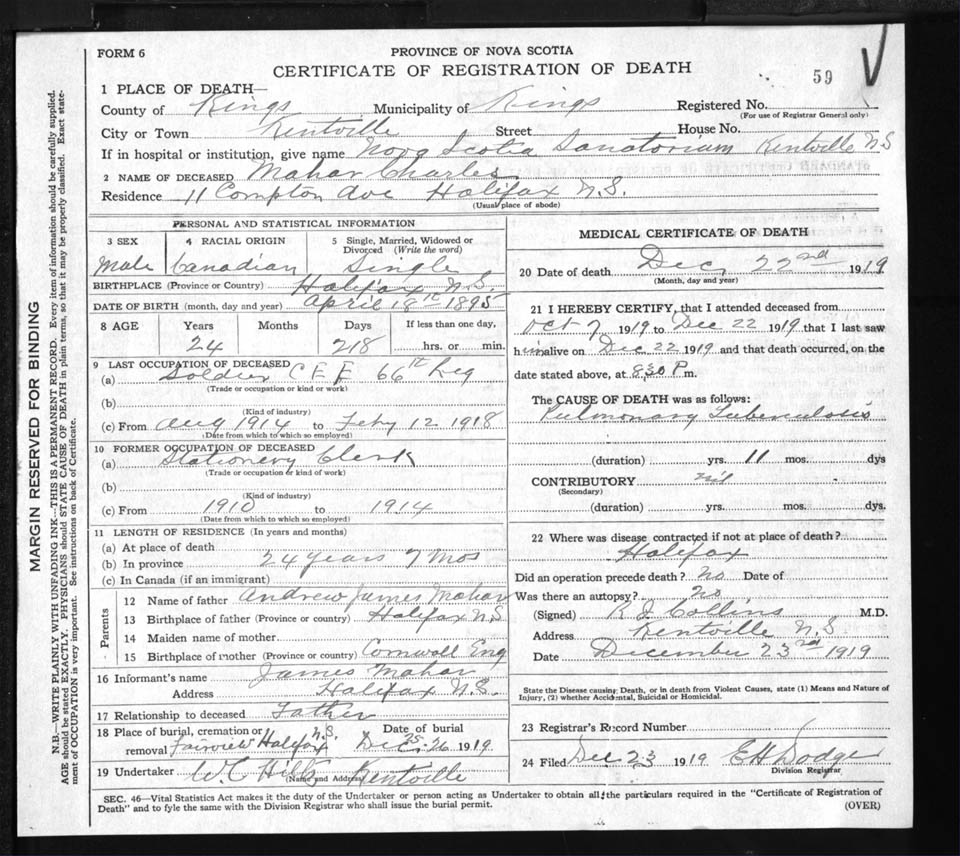 FORM 6
PROVINCE OF NOVA SCOTIA
CERTIFICATE OF REGISTRATION OF DEATH
59
1 PLACE OF DEATH—
County of Kings Municipality of Kings Registered No.
(For use of Registrar General only)
City or Town Kentville Street House No.
If in hospital or institution, give name Nova Scotia Sanatorium Kentville N.S
2 NAME OF DECEASED Mahar Charles
Residence 11 Compton Ave Halifax N.S.
(Usual place of abode)
PERSONAL AND STATISTICAL INFORMATION
3 SEX 4 RACIAL ORIGIN 5 Single, Married, Widowed or Divorced (Write the word)
Male Canadian Single
BIRTHPLACE (Province or Country) Halifax N.S.
DATE OF BIRTH (month, day and year) April 18th 1895
8 AGE Years Months Days If less than one day,
24 218 hrs. or min.
9 LAST OCCUPATION OF DECEASED
(a) Soldier C E F 66th Reg
(Trade or occupation or kind or work)
(b)
(Kind of industry)
(c) From Aug 1914 to Feby 12 1918
(Date from which to which so employed)
10 FORMER OCCUPATION OF DECEASED
(a) Stationery Clerk
(Trade or occupation or kind of work)
(b)
(Kind of industry)
(c) From 1910 to 1914
(Date from which to which so employed)
11 LENGTH OF RESIDENCE (In years and months)
(a) At place of death
(b) In province 24 years 7 mos
(c) In Canada (if an immigrant)
Parents
12 Name of father Andrew James Mahar
13 Birthplace of father (Province or country) Halifax N.S
14 Maiden name of mother
15 Birthplace of mother (Province or country) Cornwall Eng
16 Informant's name James Mahar
Address Halifax N.S.
17 Relationship to deceased Father
18 Place of burial, cremation or removal Fairview Halifax N.S. Date of burial Dec. 26 1919
19 Undertaker W C Hills Kentville
(Name and Address)
MEDICAL CERTIFICATE OF DEATH
20 Date of death Dec, 22nd 1919
(Month, day and year)
21 I HEREBY CERTIFY, that I attended deceased from
Oct 7 1919 to Dec 22 1919 that I last saw
him alive on Dec 22 1919 and that death occurred, on the
date stated above, at 8.30 P m.
The CAUSE OF DEATH was as follows:
Pulmonary Tuberculosis
(duration) yrs. 11 mos. dys
CONTRIBUTORY nil
(Secondary)
(duration) yrs. mos. dys.
22 Where was disease contracted if not at place of death?
Halifax
Did an operation precede death? no Date of
Was there an autopsy? no
(Signed) R J Collins M.D.
Address Kentville N.S
Date December 23rd 1919
State the Disease causing Death, or in death from Violent Causes, state (1) Means and Nature of
Injury, (2) whether Accidental, Suicidal or Homicidal.
23 Registrar's Record Number
24 Filed Dec 23 1919 E H Dodge
Division Registrar
SEC. 46—Vital Statistics Act makes it the duty of the Undertaker or person acting as Undertaker to obtain all the particulars required in the "Certificate of Registration of
Death" and to fyle the same with the Division Registrar who shall issue the burial permit. (OVER)
MARGIN RESERVED FOR BINDING
N.B.—WRITE PLAINLY WITH UNFADING INK—THIS IS A PERMANENT RECORD. Every item of information should be carefully supplied.
AGE should be stated EXACTLY. PHYSICIANS should STATE CAUSE OF DEATH in plain terms, so that it may be properly classified. Exact state-
ment of OCCUPATION is very important. See instructions on back of Certificate.